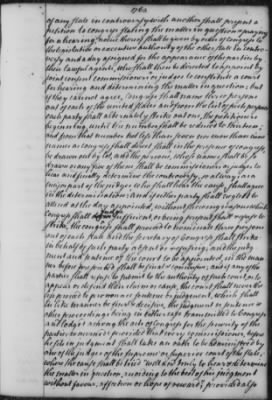 of any state in controversy with another shall present a
petition to congress stating the matter in question & praying
for a hearing, notice thereof shall be given by order of congress to
the legislative or executive authority of the other state in contro-
versy and a day assigned for the appearance of the parties by
their lawful agents, who shall then be directed to appoint by
joint consent commissioners or judges to constitute a court
for hearing and determining the matter in question; but
if they cannot agree, congress shall name three persons
out of each of the united states and from the list of such persons
each party shall alternately strike out one, the petitioners
beginning, until the number shall be reduced to thirteen;
and from that number not less than seven nor more than nine
names as congress shall direct shall in the presence of congress
be drawn out by lot, and the persons whose names shall be so
drawn or any five of them shall be commissioners or judges to
hear and finally determine the controversy, so always as a
major part of the judges who shall hear the cause shall agree
in the determination. And if either party shall neglect to
attend at the day appointed, without shewing reasons which
congress shall judge sufficient, or being present shall refuse to
strike, the congress shall proceed to nominate three persons
out of each state and the secretary of congress shall strike
in behalf of such party absent or refusing, and the judg-
ment and sentence of the court to be appointed, in the man-
ner before prescribed shall be final & conclusive; and if any of the
parties shall refuse to submit to the authority of such court, or to
appear or defend their claim or cause, the court shall never the
less proceed to pronounce sentence or judgment, which shall
in like manner be final & decisive, the judgment or sentence &
other proceedings being in either case transmitted to congress
and lodged among the acts of congress for the security of the
parties concerned: provided that every commissioner, before
he sits in judgment shall take an oath to be administered by
one of the judges of the supreme or superior court of the state,
where the cause shall be tried "well and truly to hear & determine
the matter in question, according to the best of his judgment
without favour, affection or hope of reward," provided also